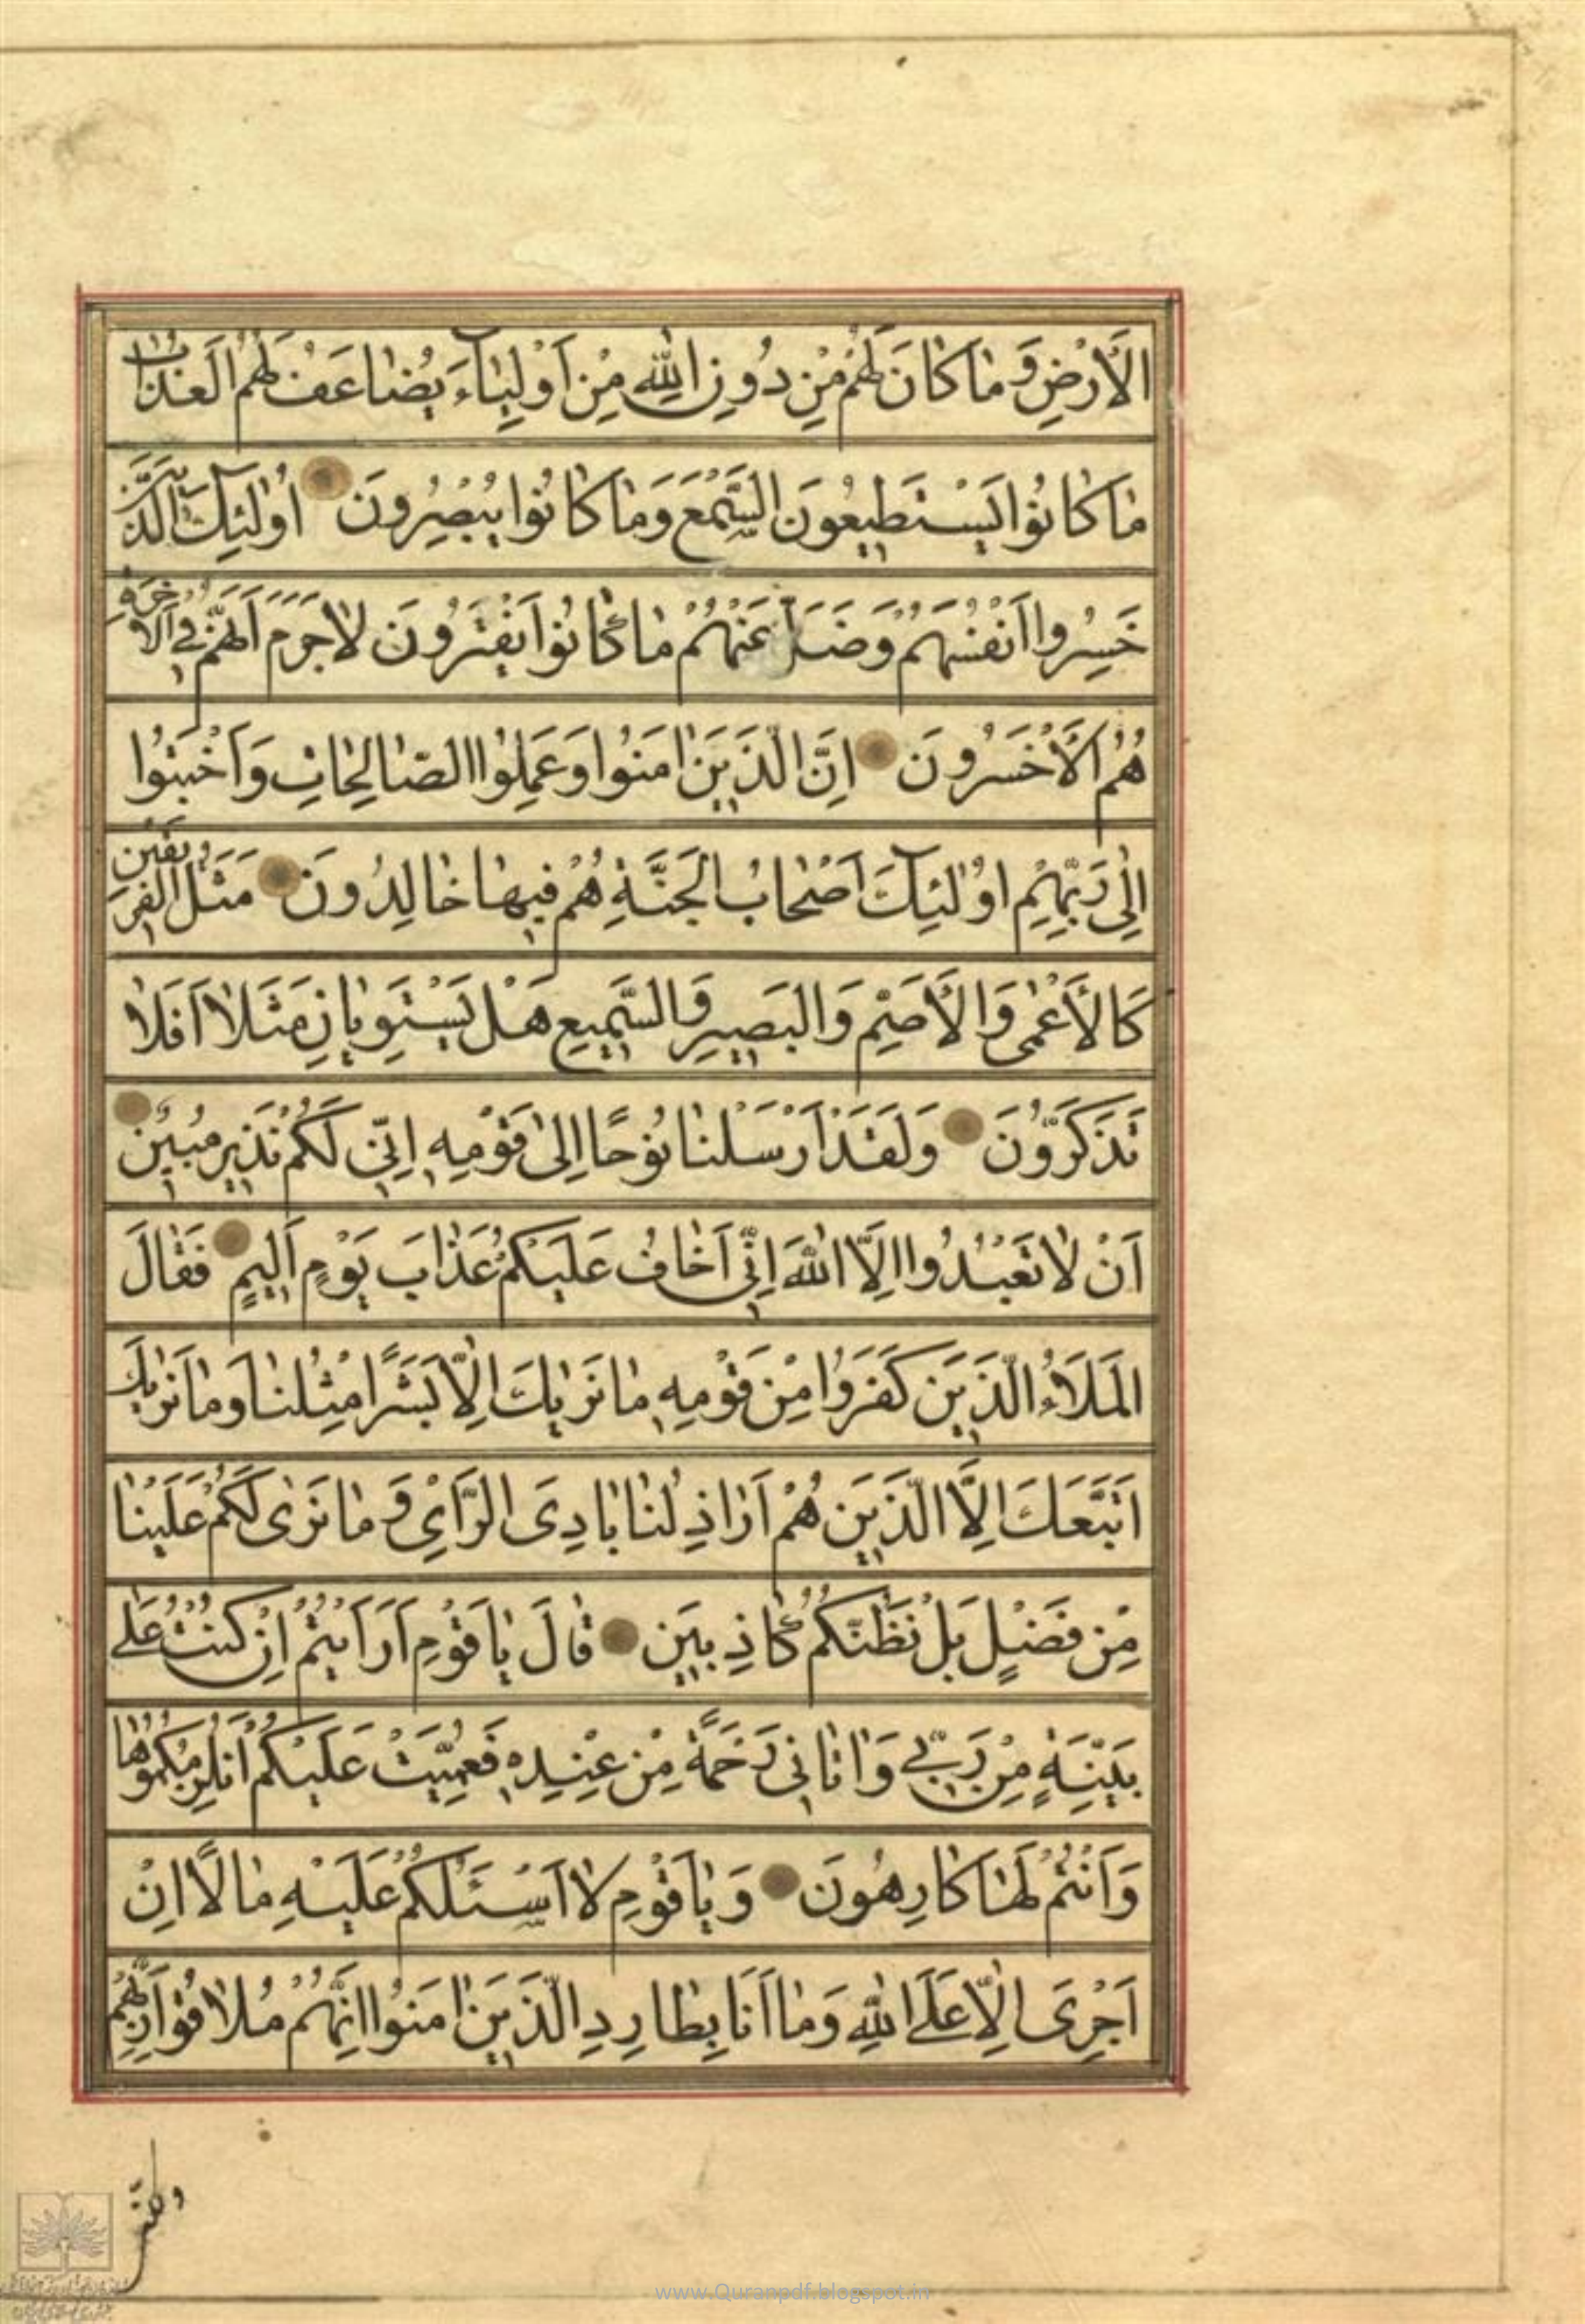 الْأَرْضِ وَمَا كَانَ لَهُمْ مِنْ دُونِ اللَّهِ مِنْ أَوْلِيَاءَ يُضَاعَفُ لَهُمُ الْعَذَابُ
مَا كَانُوا يَسْتَطِيعُونَ السَّمْعَ وَمَا كَانُوا يُبْصِرُونَ أُولَئِكَ الَّذِينَ
خَسِرُوا أَنْفُسَهُمْ وَضَلَّ عَنْهُمْ مَا كَانُوا يَفْتَرُونَ لَا جَرَمَ أَنَّهُمْ فِي الْآخِرَةِ
هُمُ الْأَخْسَرُونَ إِنَّ الَّذِينَ آمَنُوا وَعَمِلُوا الصَّالِحَاتِ وَأَخْبَتُوا
إِلَى رَبِّهِمْ أُولَئِكَ أَصْحَابُ الْجَنَّةِ هُمْ فِيهَا خَالِدُونَ مَثَلُ الْفَرِيقَيْنِ
كَالْأَعْمَى وَالْأَصَمِّ وَالْبَصِيرِ وَالسَّمِيعِ هَلْ يَسْتَوِيَانِ مَثَلًا أَفَلَا
تَذَكَّرُونَ وَلَقَدْ أَرْسَلْنَا نُوحًا إِلَى قَوْمِهِ إِنِّي لَكُمْ نَذِيرٌ مُبِينٌ
أَنْ لَا تَعْبُدُوا إِلَّا اللَّهَ إِنِّي أَخَافُ عَلَيْكُمْ عَذَابَ يَوْمٍ أَلِيمٍ فَقَالَ
الْمَلَأُ الَّذِينَ كَفَرُوا مِنْ قَوْمِهِ مَا نَرَيكَ إِلَّا بَشَرًا مِثْلَنَا وَمَا نَرَيكَ
اتَّبَعَكَ إِلَّا الَّذِينَ هُمْ أَرَاذِلُنَا بَادِيَ الرَّأْيِ وَمَا نَرَى لَكُمْ عَلَيْنَا
مِنْ فَضْلٍ بَلْ نَظُنُّكُمْ كَاذِبِينَ قَالَ يَا قَوْمِ أَرَأَيْتُمْ إِنْ كُنْتُ عَلَى
بَيِّنَةٍ مِنْ رَبِّي وَآتَانِي رَحْمَةً مِنْ عِنْدِهِ فَعُمِّيَتْ عَلَيْكُمْ أَنُلْزِمُكُمُوهَا
وَأَنْتُمْ لَهَا كَارِهُونَ وَيَا قَوْمِ لَا أَسْئَلُكُمْ عَلَيْهِ مَالًا إِنْ
أَجْرِيَ إِلَّا عَلَى اللَّهِ وَمَا أَنَا بِطَارِدِ الَّذِينَ آمَنُوا إِنَّهُمْ مُلَاقُوا رَبِّهِمْ
www.Quranpdf.blogspot.in